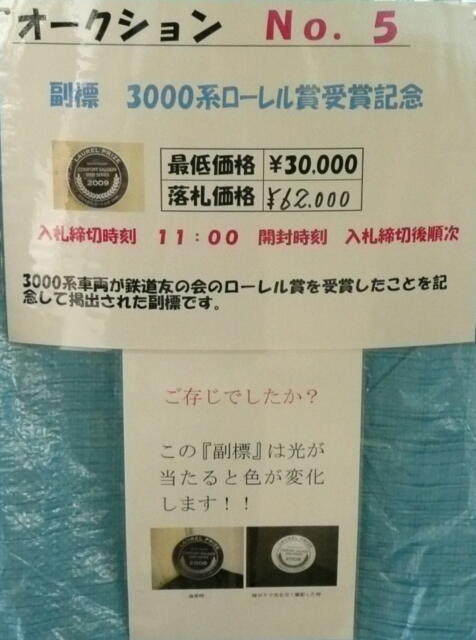 オークション No. 5
副標 3000系ローレル賞受賞記念
LAUREL PRIZE
2009
最低価格 ¥30,000
落札価格 ¥62,000
入札締切時刻 11:00 開封時刻 入札締切後順次
3000系車両が鉄道友の会のローレル賞を受賞したことを記
念して掲出された副標です。
ご存じでしたか?
この『副標』は光が
当たると色が変化
します!!
LAUREL PRIZE
2009
2009
通常時